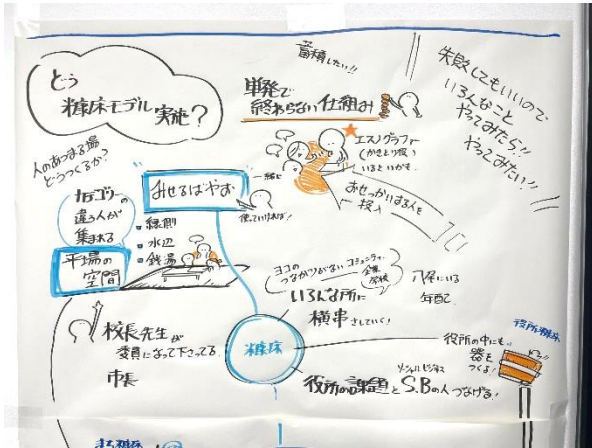 どう
糠床モデル実施？
蓄積したい!!
単発で
終わらない仕組み
失敗してもいいので
いろんなこと
やってみたら!!
やってみたい!!
エスノグラファー
いるといいかも
おせっかいする人を
投入
人のあつまる場
どうつくるか？
カテゴリーの
違う人が
集まれる
平場の
空間
みせるばやお
一緒に
使っていければ!
・縁側
・水辺
・銭湯
ヨコの
つながりがない
コミュニティー
企業
学校
いろんな所に
横串をしていく!
八尾にいる
校長先生が
委員になって下さってる
市長
糠床
役所糠床
役所の中にも
器を
つくる!
ソーシャルビジネス
役所の課題とS.Bの人つなげる!
まち糠床